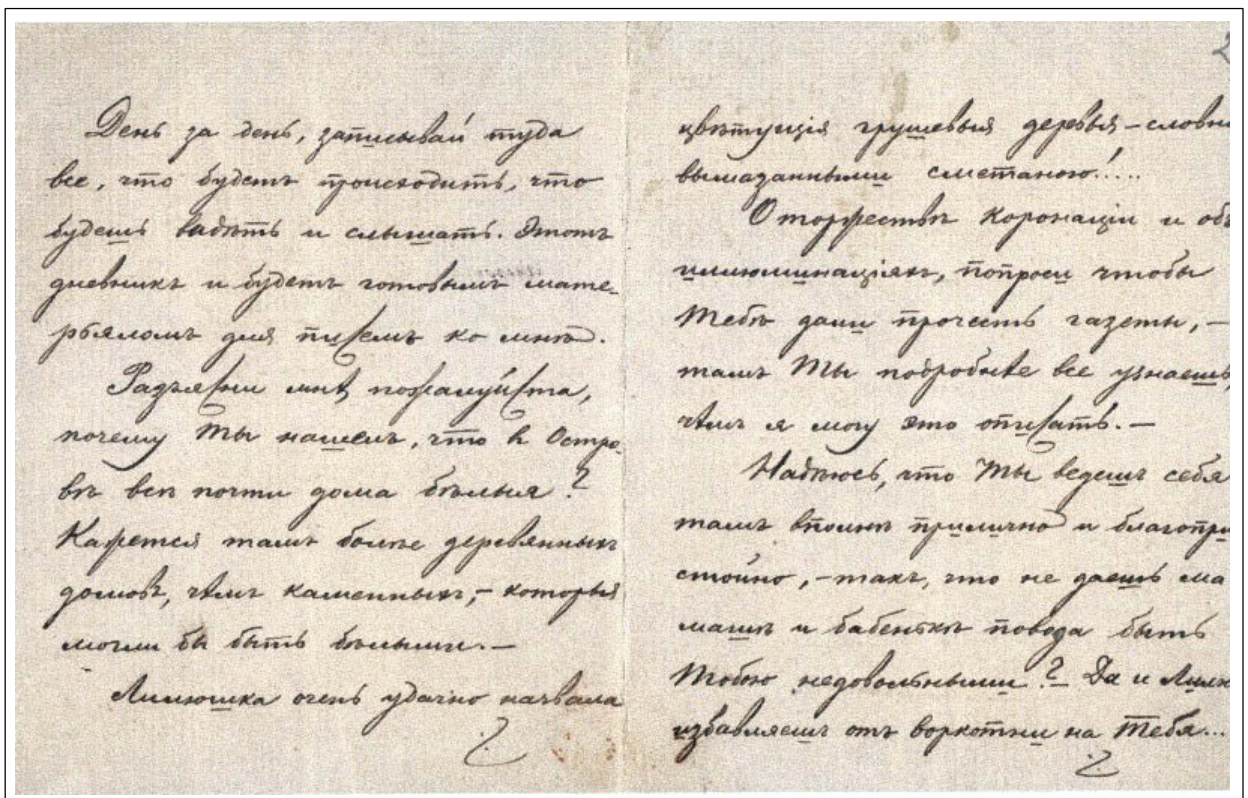 День за день, записывай туда
все, что будетъ происходить, что
будешь видѣть и слышать. Этотъ
дневникъ и будетъ готовымъ мате-
рьяломъ для писемъ ко мнѣ.
Разъясни мнѣ, пожалуйста,
почему Ты нашелъ, что в Остро-
вѣ всѣ почти дома бѣлыя?
Кажется тамъ болѣе деревянныхъ
домовъ, чѣмъ каменныхъ, – которыя
могли бы быть бѣлыми. –
Лилюшка очень удачно назвала
2
цвѣтущія грушевыя деревья – словно
вымазанными сметаною!....
О торжествѣ Коронаціи и объ
иллюминаціяхъ, попроси чтобы
Тебѣ дали прочесть газеты, –
тамъ Ты подробнѣе все узнаешь,
чѣмъ я могу это описать. –
Надѣюсь, что Ты ведешь себя
тамъ вполнѣ прилично и благопри
стойно, – такъ, что не даешь ма
машѣ и бабенькѣ повода быть
Тобою недовольными? Да и Лилю
избавляешь отъ воркотни на Тебя...
2